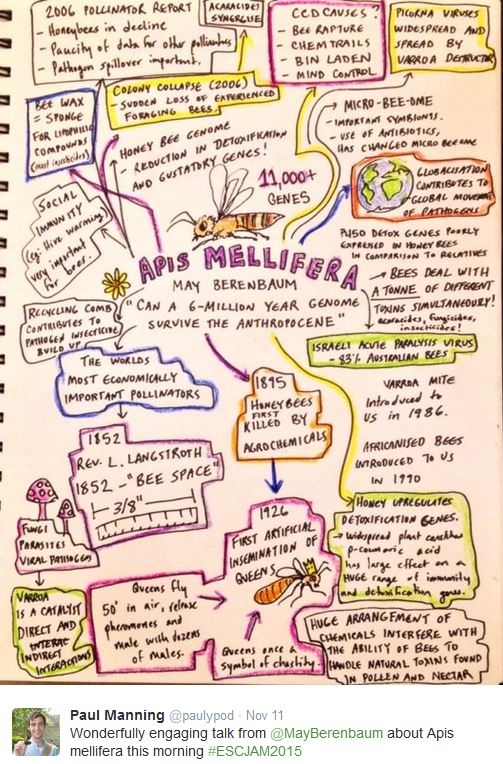 2006 POLLINATOR REPORT
- Honeybees in decline
- Paucity of data for other pollinators
- Pathogen spillover important.
ACARACIDES
SYNERGISE
CCD CAUSES?
- BEE RAPTURE
- CHEMTRAILS
- BIN LADEN
- MIND CONTROL
PICORNA VIRUSES
WIDESPREAD AND
SPREAD BY
VARROA DESTRUCTOR
BEE WAX
= SPONGE
FOR LIPOPHILIC
COMPOUNDS
(most insecticides)
COLONY COLLAPSE (2006)
- SUDDEN LOSS OF EXPERIENCED
FORAGING BEES
HONEY BEE GENOME
- REDUCTION IN DETOXIFICATION
AND GUSTATORY GENES!
MICRO-BEE-OME
- IMPORTANT SYMBIONTS.
- USE OF ANTIBIOTICS,
HAS CHANGED MICRO BEEOME
11,000+
GENES
GLOBALISATION
CONTRIBUTES TO
GLOBAL MOVEMENT
OF PATHOGENS
SOCIAL
IMMUNITY
(eg. Hive warming)
very important
for bees.
P450 DETOX GENES POORLY
EXPRESSED IN HONEY BEES
IN COMPARISON TO RELATIVES
APIS MELLIFERA
MAY BERENBAUM
"CAN A 6-MILLION YEAR GENOME
SURVIVE THE ANTHROPOCENE"
- BEES DEAL WITH
A TONNE OF DIFFERENT
TOXINS SIMULTANEOUSLY!
acaracides, fungicides,
insecticides!
RECYCLING COMB
CONTRIBUTES TO
PATHOGEN INSECTICIDE
BUILD UP
ISRAELI ACUTE PARALYSIS VIRUS
- 83% AUSTRALIAN BEES
THE WORLDS
MOST ECONOMICALLY
IMPORTANT POLLINATORS
1895
HONEYBEES
FIRST
KILLED BY
AGROCHEMICALS
VARROA MITE
Introduced to
US in 1986.
AFRICANISED BEES
INTRODUCED TO US
IN 1990
1852
REV. L. LANGSTROTH
1852 - "BEE SPACE"
3/8"
FUNGI
PARASITES
VIRAL PATHOGENS
1926
FIRST ARTIFICIAL
INSEMINATION OF
QUEENS
HONEY UPREGULATES
DETOXIFICATION GENES.
- widespread plant
p-coumaric acid
has large effect on a
HUGE range of immunity
and detoxification genes.
VARROA
IS A CATALYST
DIRECT AND
INDIRECT
INTERACTIONS
Queens fly
50' in air, release
pheromones and
mate with dozens
of males.
Queens once a
symbol of chastity.
HUGE ARRANGEMENT OF
CHEMICALS INTERFERE WITH
THE ABILITY OF BEES TO
HANDLE NATURAL TOXINS FOUND
IN POLLEN AND NECTAR
Paul Manning @paulypod · Nov 11
Wonderfully engaging talk from @MayBerenbaum about Apis
mellifera this morning #ESCJAM2015